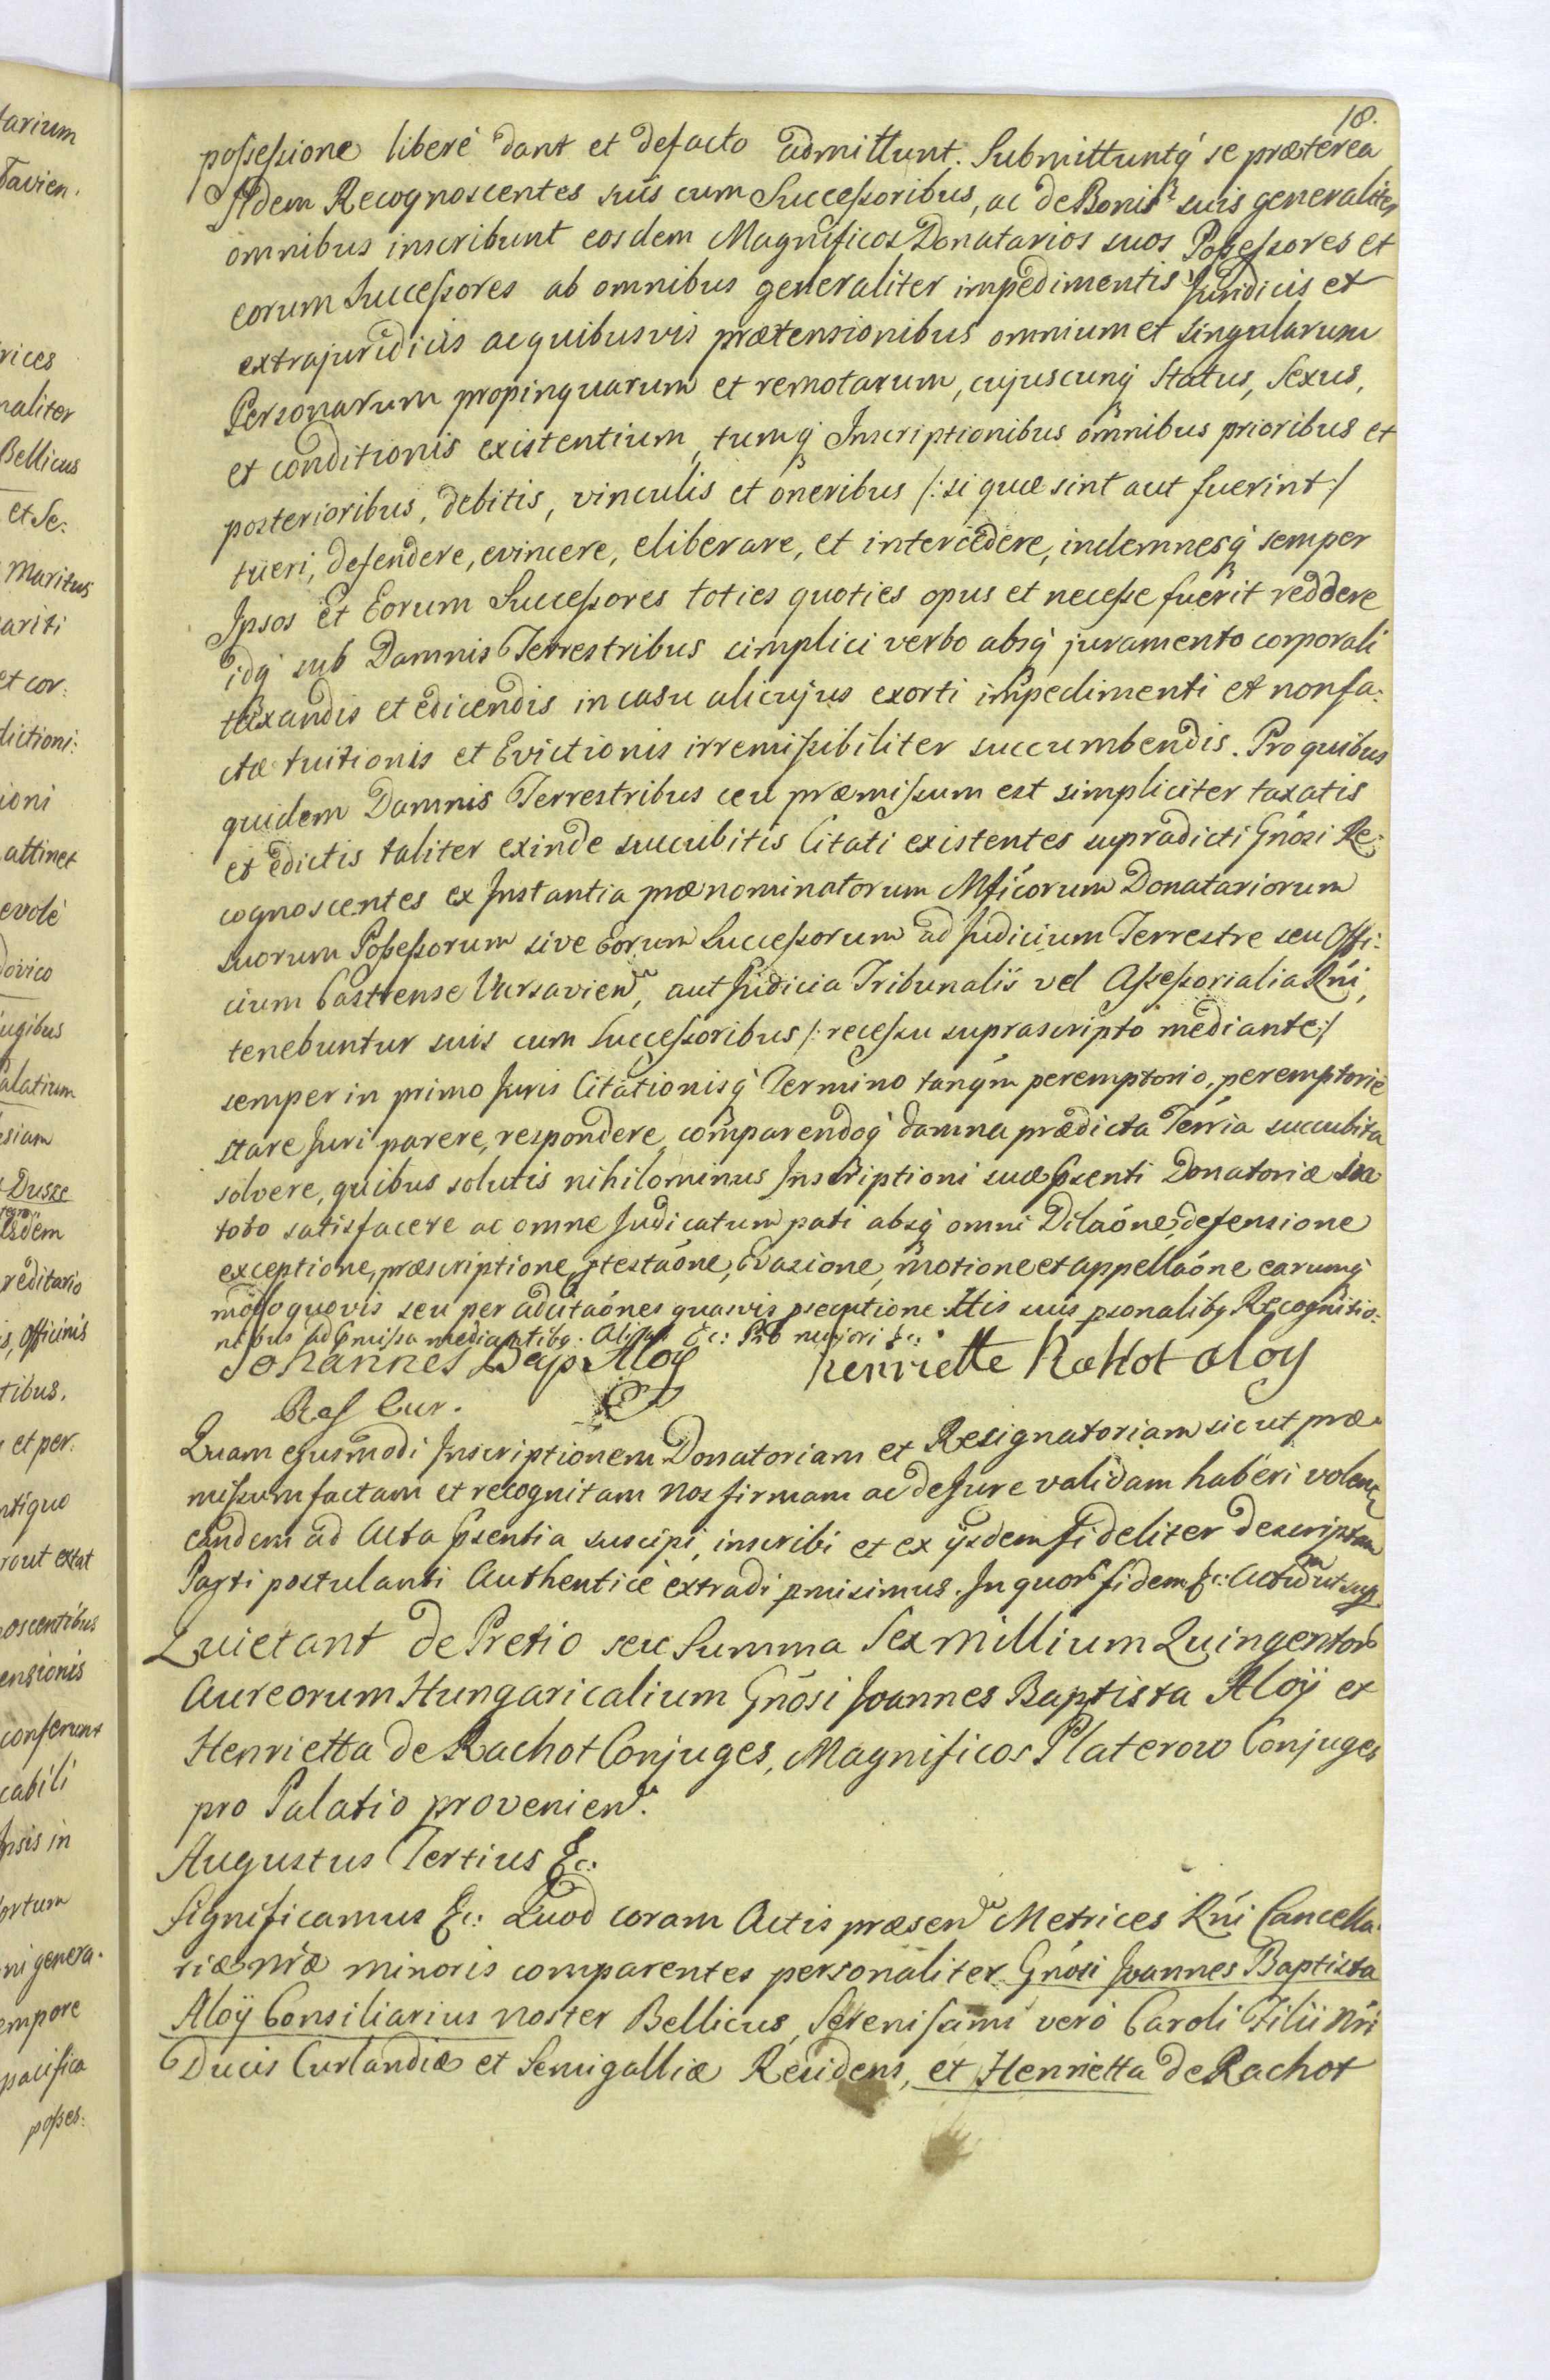 18.
possessione liberè dant et defacto admittunt. Submittuntq́ se præterea
Iidem Recognoscentes suis cum Successoribus, ac de Bonis suis generaliter
omnibus inscribunt eosdem Magnificos Donatarios suos Possessores et
eorum Successores ab omnibus generaliter impedimentis Juridicis et
extrajuridicis ac quibusvis prætensionibus omnium et singularum
Personarum propinquarum et remotarum, cujuscunq́ Status, Sexus,
et conditionis existentium, tumq́ Inscriptionibus omnibus prioribus et
posterioribus, debitis, vinculis et oneribus /: si quæ sint aut fuerint :/
tueri, defendere, evincere, eliberare, et intercedere, indemnesq́ semper
Ipsos et Eorum Successores toties quoties opus et necesse fuerit reddere
idq́ sub Damnis Terrestribus cimplici verbo absq́ juramento corporali
taxandis et edicendis in casu alicujus exorti impedimenti et non fa:
ctæ tuitionis et Evictionis irremissibiliter succumbendis. Pro quibus
quidem Damnis Terrestribus ceu præmissum est simpliciter taxatis
et edictis taliter exinde succubitis Citati existentes supradicti Gnósi Re:
cognoscentes ex Instantia prænominatorum Mficórum Donatariorum
suorum Possessorum sive Eorum Successorum ad Judicium Terrestre seu Offi:
cium Castrense Varsavien, aut Judicia Tribunalis vel Assessorialia Rńi,
tenebuntur suis cum Successoribus /: recessu suprascripto mediante :/
semper in primo Juris Citationisq́ Termino tanq́m peremptorio, peremptoriè
stare Juri parere, respondere, comparendoq́ damna prædicta Terría succubita
solvere, quibus solutis nihilominus Inscriptioni suæ pśenti Donatoriæ in
toto satisfacere ac omne Judicatum pati absq́ omni Dilaóne, defensione
exceptione, præscriptione, ptestaóne, Evasione, motione et appellaóne earumq́
modo quovis seu per adcitaónes quasvis psecutione Itis suis psonalibq Recognitio:
nibus ad pmissa mediantibq. &c: majori &c:
Johannes Bap. Aloy Henriette Rachot aloy
Cur.
Quam ejusmodi Inscriptionem Donatoriam et Resignatoriam sicut præ:
missum factam et recognitam Nos firmam ac de Jure validam haberi volentes
eandem ad Acta pśentia suscipi, inscribi et ex ijsdem fideliter descriptam
Parti postulanti Authenticè extradi pmisimus. In quor fidem &c: Actum ut sup
Quietant de Pretio seu Summa Sex millium Quingentor
Aureorum Hungaricalium Gnósi Joannes Baptista Aloÿ et
Henrietta de Rachot Conjuges, Magnificos Platerow Conjuges
pro Palatio provenien.
Augustus Tertius &c:
Significamus &c: Quod coram Actis præsen Metrices Rńi Cancella:
riæ nŕæ minoris comparentes personaliter Gnósi Joannes Baptista
Aloÿ Consiliarius noster Bellicus, Serenissimi verò Caroli Filii nŕi
Ducis Curlandiæ et Semigalliæ Residens, et Henrietta de Rachot